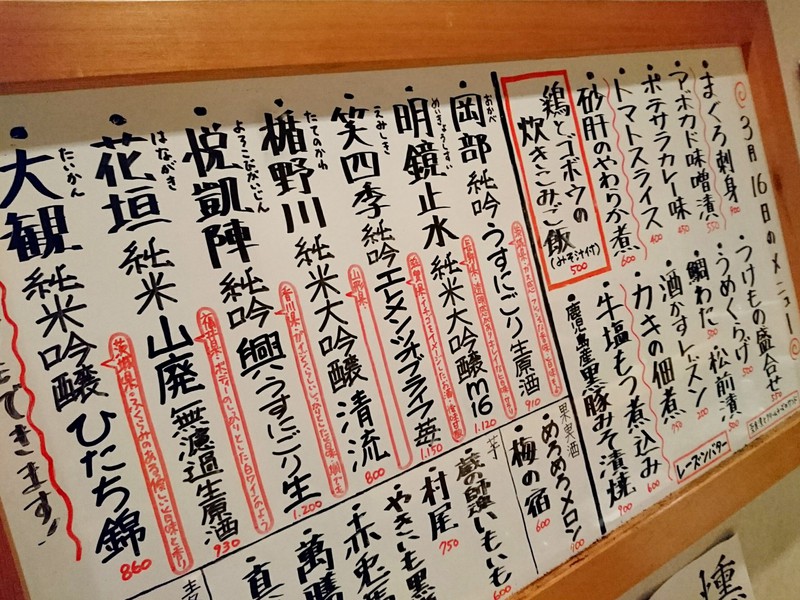 3月16日のメニュー
まぐろ刺身 800
アボカド味噌漬 550
ポテサラカレー味 450
トマトスライス 400
砂肝のやわらか煮 600
鶏とゴボウの
炊きこみご飯
(みそ汁付) 500
つけもの盛合せ 550
うめくらげ 500
松前漬 500
鯛わた 500
酒かすレーズン 200
レーズンバター
カキの佃煮 750
牛塩もつ煮込み 600
鹿児島産黒豚みそ漬焼 900
おかべ
岡部 純吟 うすにごり 生原酒 910
めいきょうしすい
明鏡止水 純米大吟醸 m16 1.120
えみしき
笑四季 純吟 エレメンツオブライフ 苺 1.150
たてのかわ
楯野川 純米大吟醸 清流 800
山形県
よろこびがいじん
悦凱陣 純吟 興 うすにごり生 1.200
香川県
はながき
花垣 純米 山廃 無濾過生原酒 930
福井県・ボディーのしっかりとした白ワインのよう
たいかん
大観 純米吟醸 ひたち錦 860
茨城県・ふくらみのある優しい旨味と香り
できます!
果実酒
めろめろメロン 700
梅の宿 600
芋
蔵の師魂 いもいも 600
村尾 750
やきいも黒
赤兎
萬膳
真